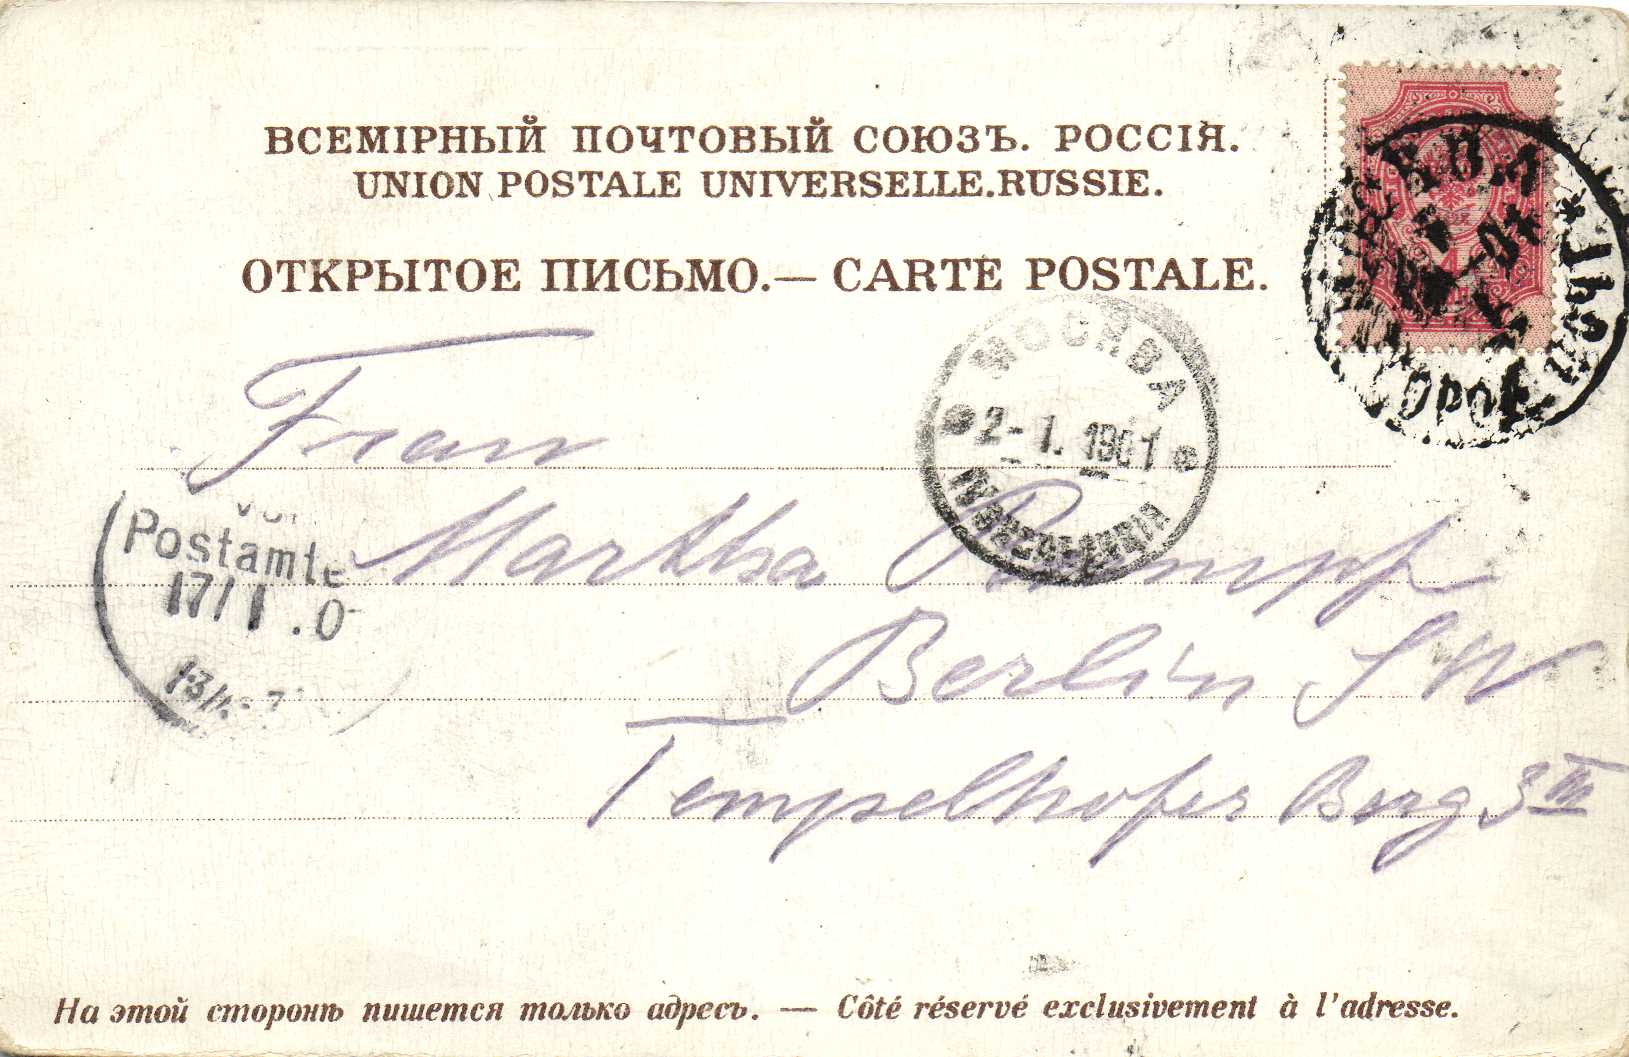 ВСЕМІРНЫЙ ПОЧТОВЫЙ СОЮЗЪ. РОССІЯ.
UNION POSTALE UNIVERSELLE.RUSSIE.
ОТКРЫТОЕ ПИСЬМО.— CARTE POSTALE.
МОСКВА
2-1.1901
Frau
Postamte
17/1.0
Martha Rumpp
Berlin SW
Tempelhofer Berg 3 III
На этой сторонѣ пишется только адресъ. — Côté réservé exclusivement à l'adresse.